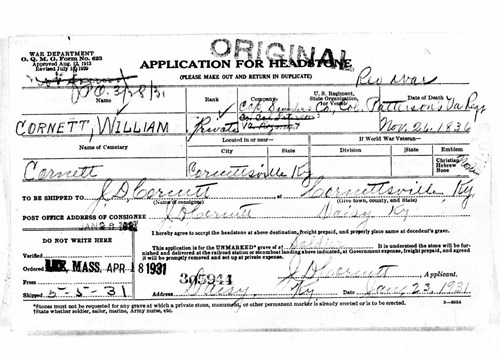 WAR DEPARTMENT
O. Q. M. G. Form No. 623
Approved Aug. 12, 1912
ORIGINAL
APPLICATION FOR HEADSTONE
(PLEASE MAKE OUT AND RETURN IN DUPLICATE)
Rev War
Name
Rank
Company
U.S. Regiment, State Organization, or Vessel
Date of Death
CORNETT, WILLIAM
Private
Capt
Co., Col. Patterson's Va Reg
Nov. 26, 1836
Name of Cemetery
Located in or near—
If World War Veteran—
Emblem
City
State
Division
State
Christian
Hebrew
None
Cornett
Cornettsville
Ky
TO BE SHIPPED TO J D Cornett at Cornettsville, Ky
(Name of consignee)
(Give town, county, and state)
POST OFFICE ADDRESS OF CONSIGNEE J D Cornett Daisy Ky
I hereby agree to accept the headstone at above destination, freight prepaid, and properly place same at decedent's grave.
DO NOT WRITE HERE
This application is for the UNMARKED* grave of a Soldier. It is understood the stone will be furnished and delivered at the railroad station or steamboat landing above indicated, at Government expense, freight prepaid, and agreed it will be promptly removed and set up at private expense.
Verified
Ordered LEE, MASS. APR 18 1931
365944
J D Cornett, Applicant.
Shipped 5-5-31
Address Daisy, Ky Date Jan, 23, 1931
*Stones must not be requested for any grave at which a private stone, monument, or other permanent marker is already erected or to be erected.
†State whether soldier, sailor, marine, Army nurse, etc.